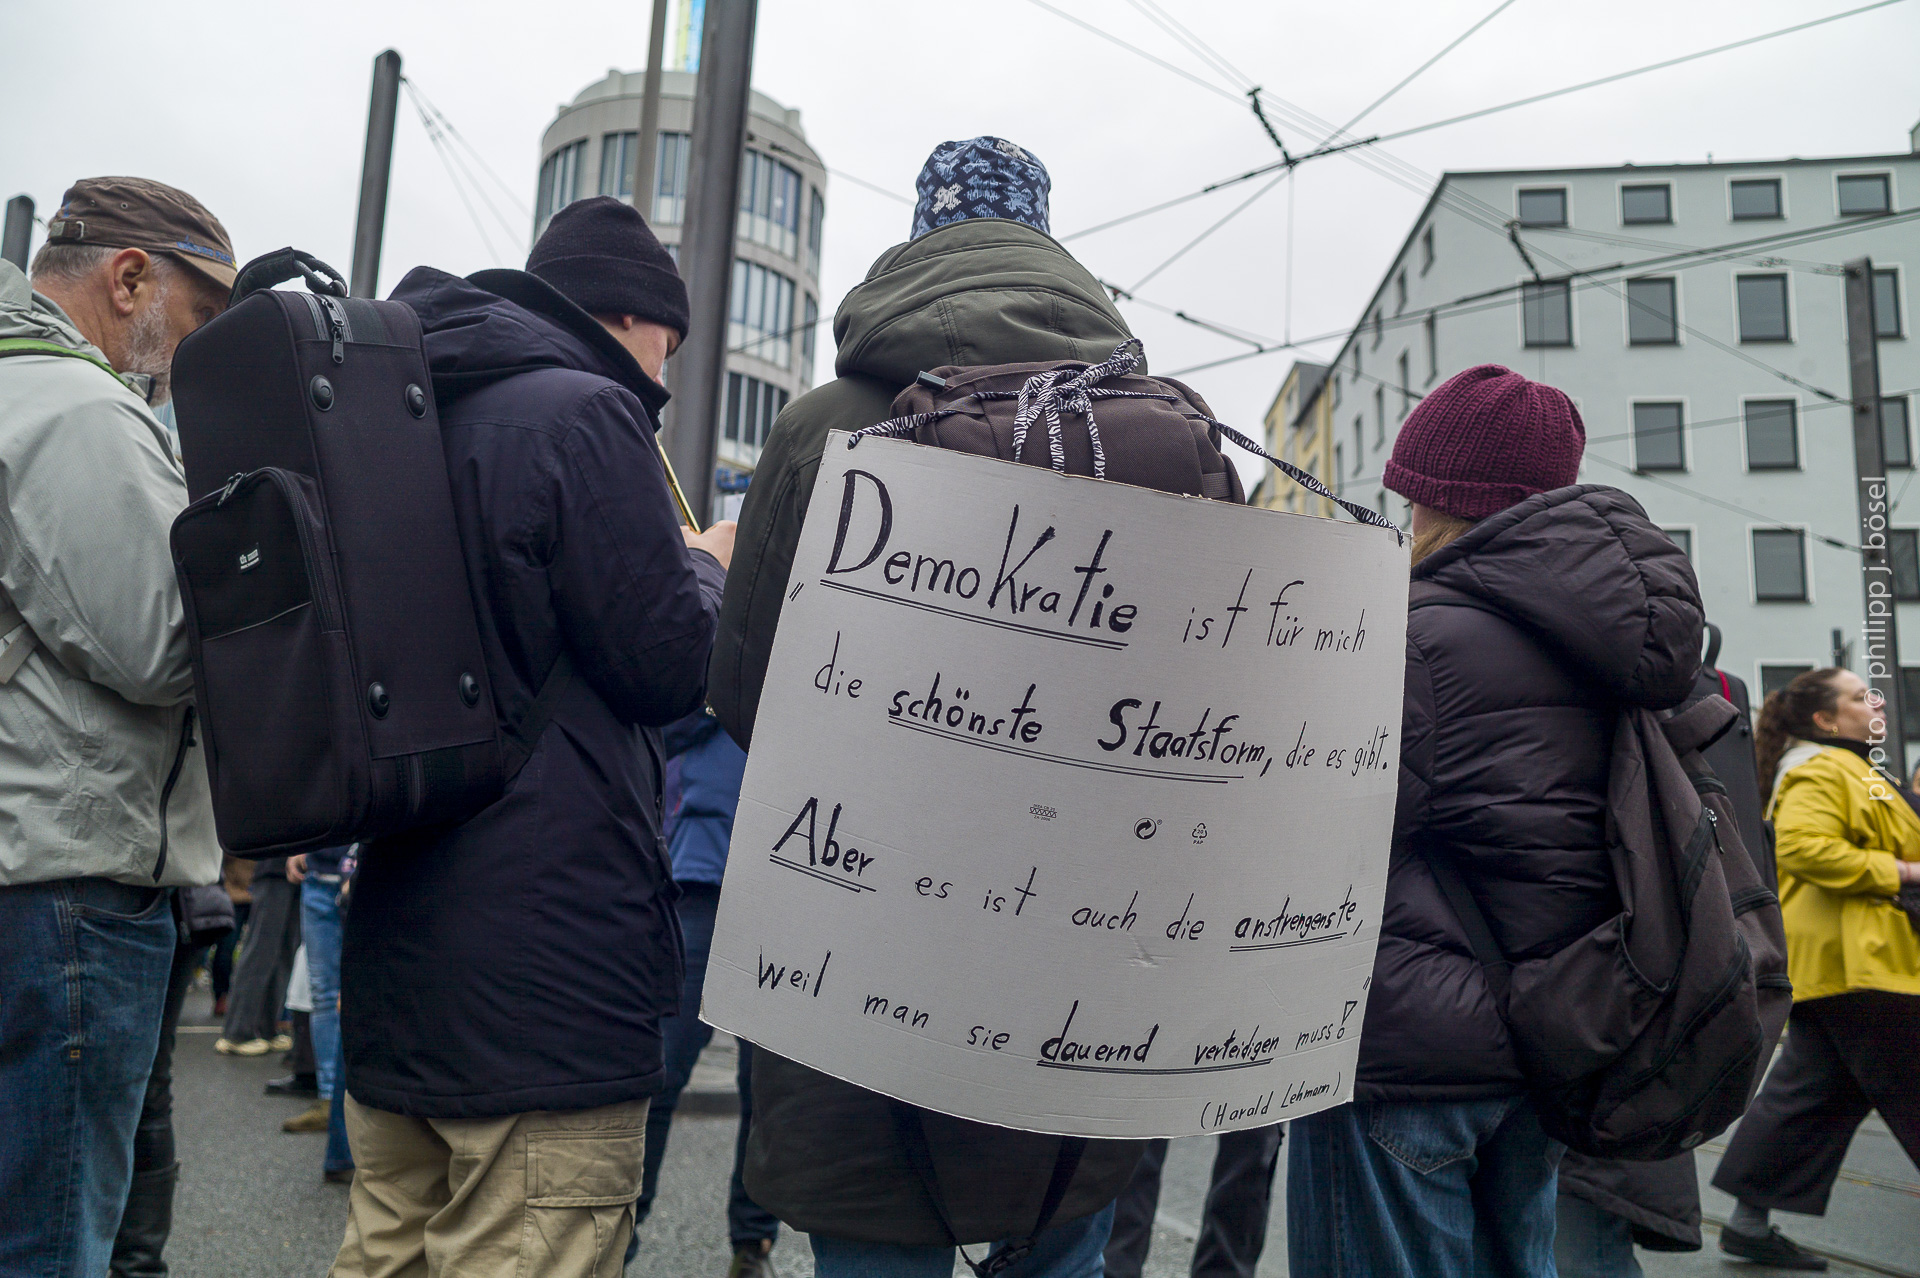 „Demokratie ist für mich
die schönste Staatsform, die es gibt.
Aber es ist auch die anstrengenste,
weil man sie dauernd verteidigen muss!"
(Harald Lehmann)
photo© philipp j. bösel